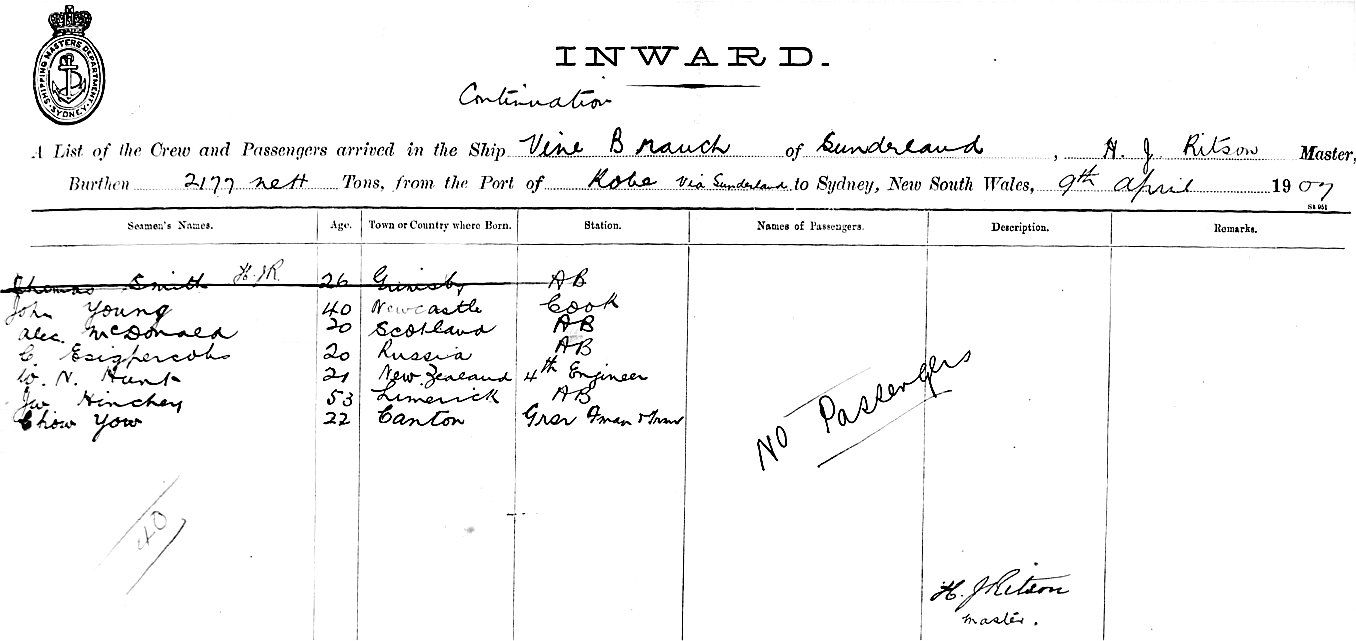 SHIPPING MASTERS DEPARTMENT. SYDNEY.
INWARD.
Continuation
A List of the Crew and Passengers arrived in the Ship Vine Branch of Sunderland, H. J Ritson Master,
Burthen 2177 nett Tons, from the Port of Kobe via Sunderland to Sydney, New South Wales, 9th April 1907
S1 951
Seamen's Names. Age. Town or Country where Born. Station. Names of Passengers. Description. Remarks.
Thomas Smith H.JR. 26 Grimsby AB
John Young 40 Newcastle Cook
Alec. McDonald 20 Scotland AB
C. 20 Russia AB
W. N. Hunt 21 New Zealand 4th Engineer
Hinchey 53 Limerick AB
Chow Yow 22 Canton Grsr Fman &
NO Passengers
40
H. J Ritson
Master.